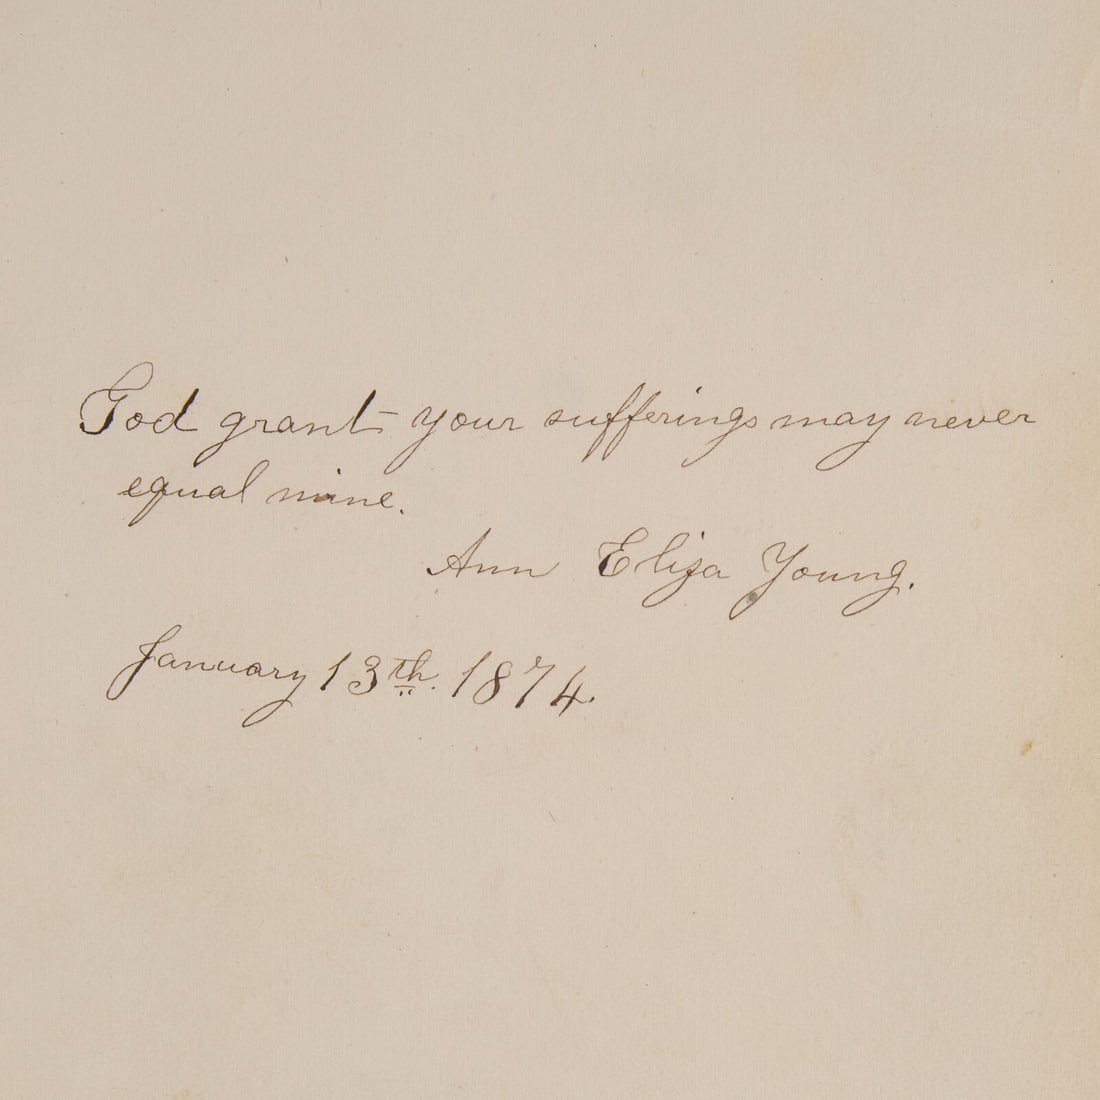 God grant your sufferings may never
equal mine.
Ann Eliza Young.
January 13th. 1874.